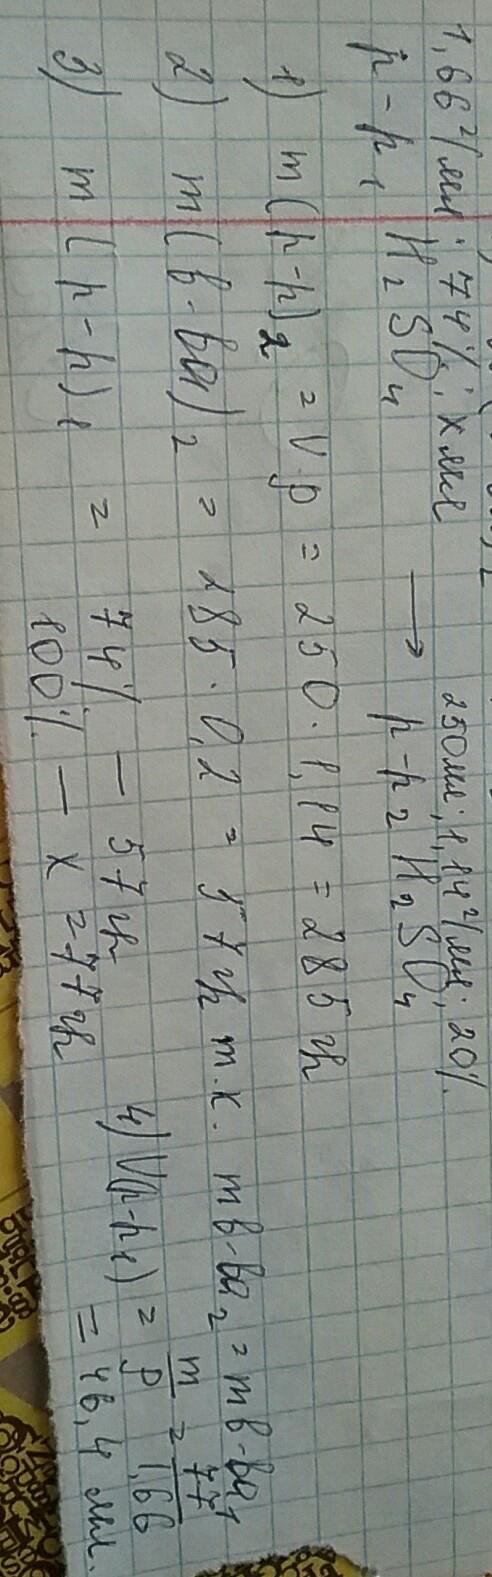 1,66 г/мл; 74%; x мл 250 мл; 1,14 г/мл; 20%
р-р₁ H₂SO₄ → р-р₂ H₂SO₄
1) m(р-р)₂ = V·ρ = 250·1,14 = 285 гр
2) m(в-ва)₂ = 285·0,2 = 57 гр т.к. mв-ва₂ = mв-ва₁
3) m(р-р)₁ = 74% — 57 гр
100% — x = 77 гр
4) V(р-р₁) = m/ρ = 77/1,66
= 46,4 мл.